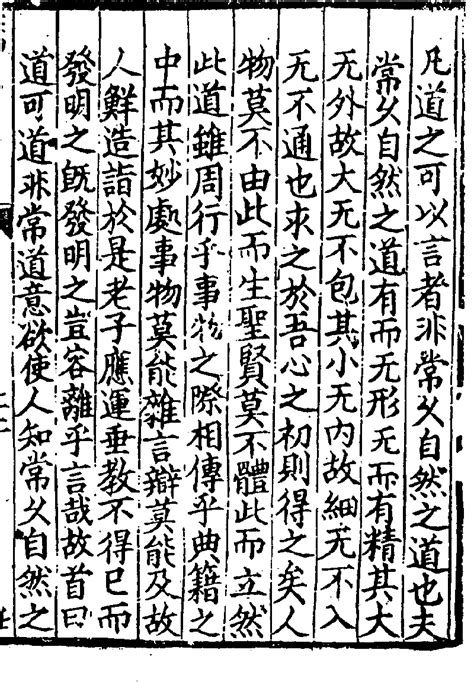 凡道之可以言者非常久自然之道也夫
常久自然之道有而无形无而有精其大
无外故大无不包其小无内故細无不入
无不通也求之於吾心之初則得之矣人
物莫不由此而生聖賢莫不體此而立然
此道雖周行乎事物之際相傳乎典籍之
中而其妙處事物莫能雜言辯莫能及故
人鮮造詣於是老子應運垂教不得已而
發明之旣發明之豈容離乎言哉故首曰
道可道非常道意欲使人知常久自然之